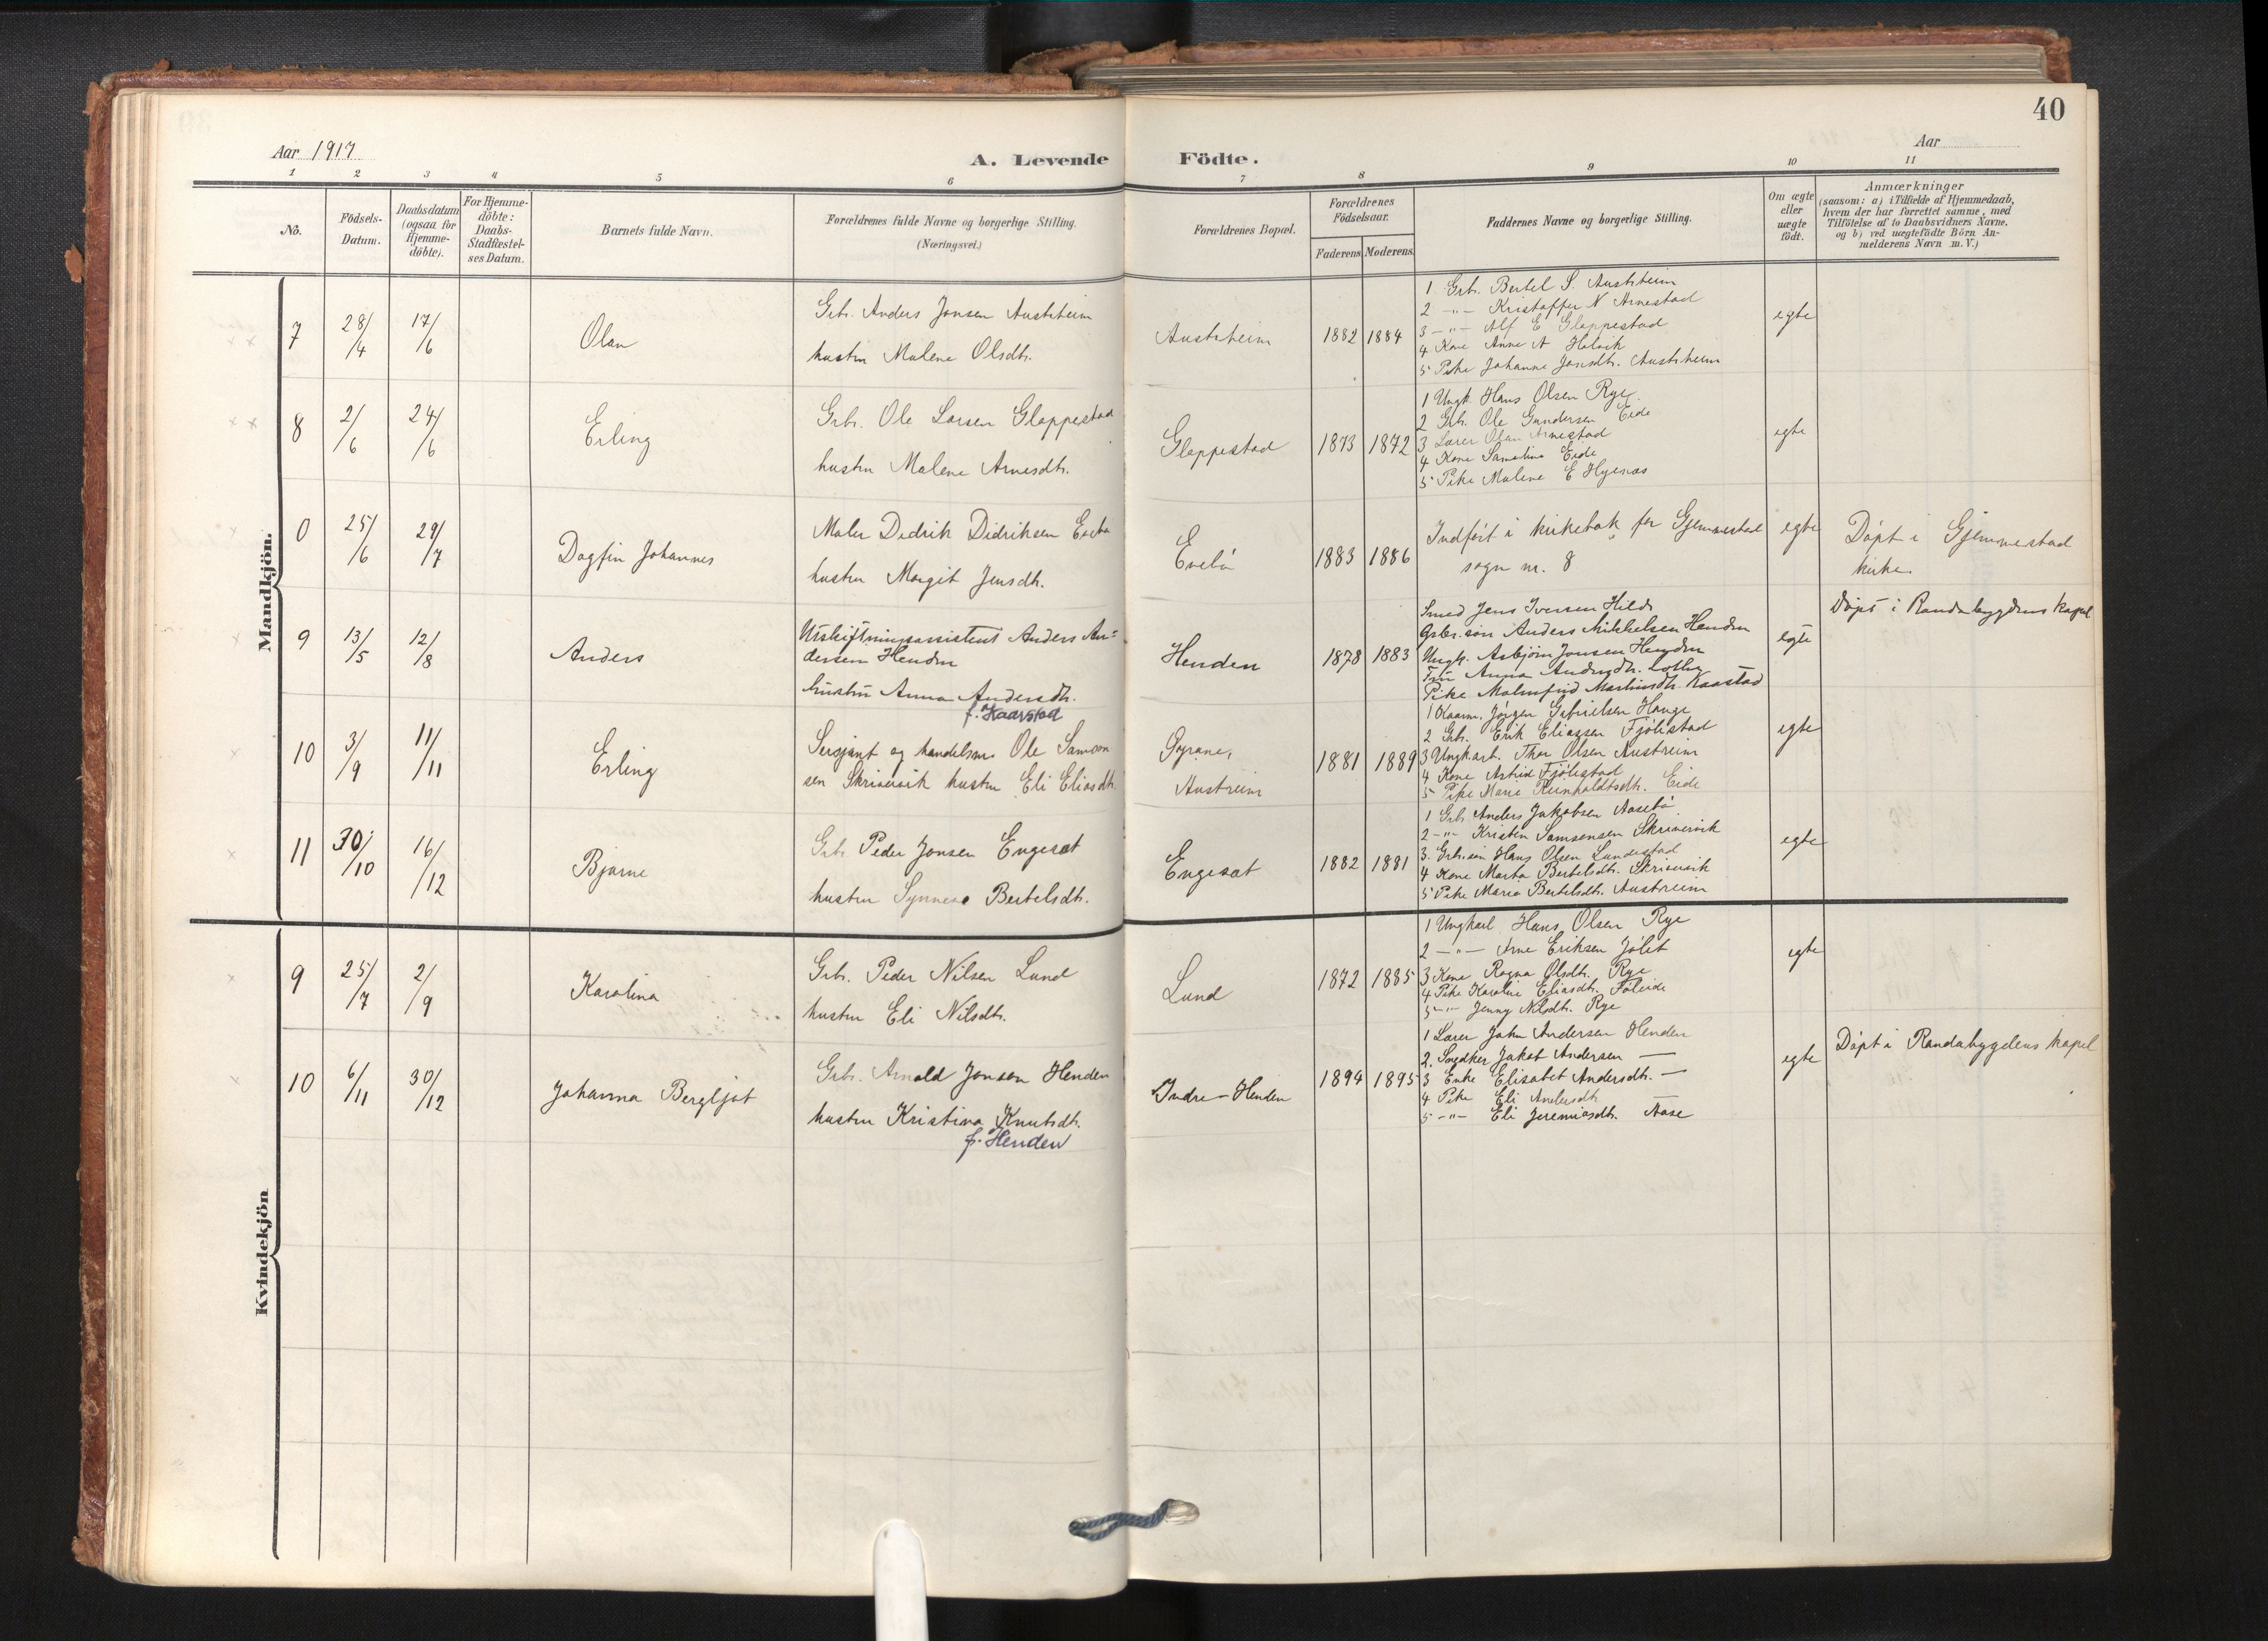 40
Aar 1917
A. Levende Födte.
Aar
1 2 3 4 5 6 7 8 9 10 11
No.
Födsels-
Datum.
Daabsdatum
(ogsaa for
Hjemme-
döbte).
For Hjemme-
döbte:
Daabs-
Stadfæstel-
ses Datum.
Barnets fulde Navn.
Forældrenes fulde Navne og borgerlige Stilling.
(Næringsvei.)
Forældrenes Bopæl.
Forældrenes
Födselsaar.
Faderens Moderens.
Faddernes Navne og borgerlige Stilling.
Om ægte
eller
uægte
födt.
Anmærkninger
(saasom: a) i Tilfælde af Hjemmedaab,
hvem der har forrettet samme, med
Tilföielse af to Daabsvidners Navne,
og b) ved uægtefödte Börn An-
melderens Navn m. V.)
Mandkjön.
7 28/4 17/6 Olav
Grb. Anders Jonsen Austrheim
hustru Malene Olsdtr.
Austrheim 1882 1884
1 Grb. Bertel S. Austrheim
2 -"- Kristoffer N Arnestad
3 -"- Alf E Gloppestad
4 Kone Anne A Holvik
5 Pike Johanne Jonsdtr. Austrheim
egte
8 2/6 24/6 Erling
Grb. Ole Larsen Gloppestad
hustru Malene Arnesdtr.
Gloppestad 1873 1872
1 Ungk. Hans Olsen Rye.
2 Grb. Ole Gundersen Eide
3 Lærer Olav Arnestad
4 Kone Sameline Eide
5 Pike Malene E Hyenæs
egte
0 25/6 29/7 Dagfin Johannes
Maler Didrik Didriksen Evebø
hustru Margit Jensdtr.
Evebø 1883 1886
Indført i kirkebok for Gjemmestad
sogn nr. 8
egte
Døpt i Gjemmestad
kirke.
9 13/5 12/8 Anders
Utskiftningsassistent Anders An-
dersen Henden
hustru Anna Andersdtr.
f. Kaarstad
Henden 1878 1883
Smed Jens Iversen Hilde
Grbr.søn Anders Mikkelsen Henden
Ungk. Asbjørn Jonsen Henden
Fru Anna Andrsdtr. Lothe
Pike Malmfrid Martinsdtr. Kaastad
egte
Døpt i Randabygdens kapel
10 3/9 11/11 Erling
Sersjant og handelsm. Ole Samson
sen Skrivervik hustru Eli Eliasdtr.
Øyrane,
Austreim
1881 1889
1 Kaarm. Jørgen Gabrielsen Hauge
2 Grb. Erik Eliassen Fjølestad
3 Ungk.arb. Thor Olsen Austreim
4 Kone Astrid Fjølestad
5 Pike Marie Reinholdtsdtr. Eide
egte
11 30/10 16/12 Bjarne
Grb. Peder Jonsen Engeset
hustru Synneve Bertelsdtr.
Engeset 1882 1881
1 Grb Anders Jakobsen Aasebø
2 -"- Kristen Samsonsen Skrivervik
3. Grb.søn Hans Olsen Lundestad
4 Kone Marta Bertelsdtr. Skrivervik
5 Pike Maria Bertelsdtr. Austreim
egte
Kvindekjön
9 25/7 2/9 Karolina
Grb. Peder Nilsen Lund
hustru Eli Nilsdtr.
Lund 1872 1885
1 Ungkarl Hans Olsen Rye
2 -"- Arne Eriksen Jølet
3 Kone Ragna Olsdtr. Rye
4 Pike Karoline Eliasdtr. Føleide
5 -"- Jenny Nilsdtr. Rye
egte
10 6/11 30/12 Johanna Bergljot
Grb. Arnold Jonsen Henden
hustru Kristina Knutsdtr.
f. Henden
Indre-Henden 1894 1895
1 Lærer John Andersen Henden
2. Snedker Jakob Andersen —
3 Enke Elisabet Andersdtr. —
4 Pike Eli Andersdtr —
5 -"- Eli Jeremiasdtr. Aase
egte
Døpt i Randabygdens kapel